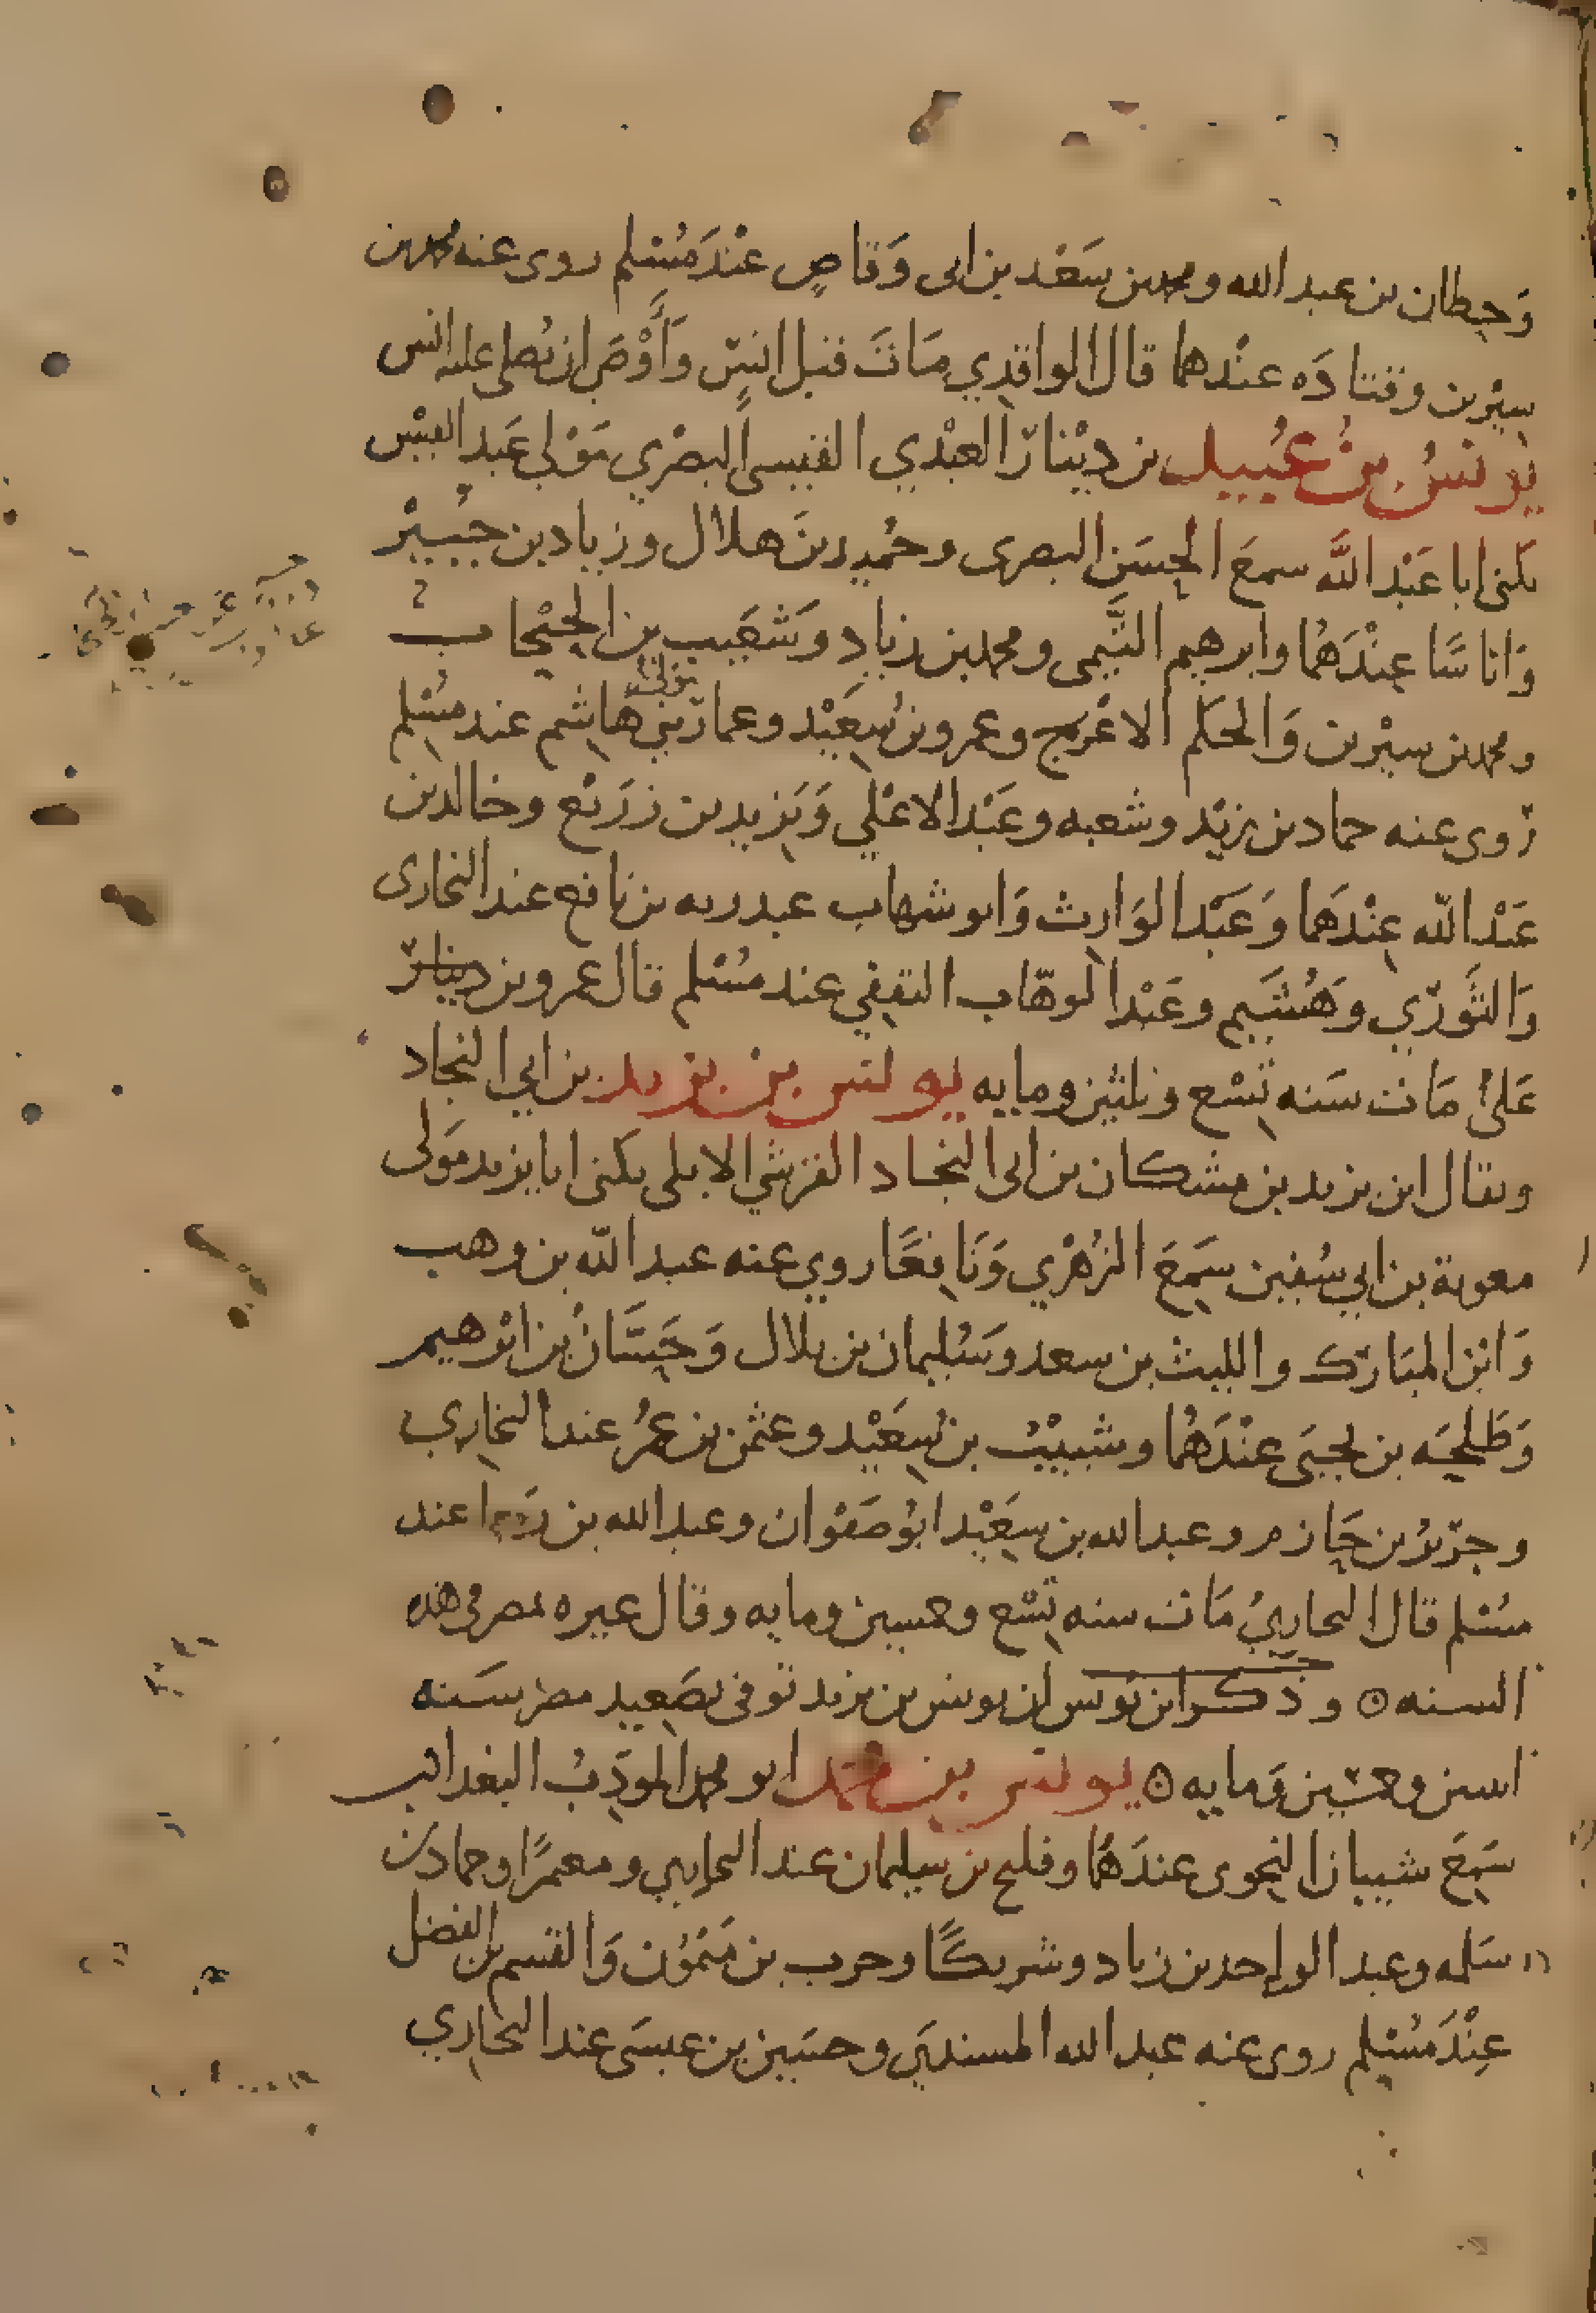 وَحِطان بن عبد الله ومحمد بن سَعْد بن ابى وَقاصٍ عنْدَ مُسْلم روى عنه محمد بن
سِيْرين وقتادَه عنْدهما قال الواقدِي مَاتَ قبل انسٍ وَأَوْصَى ان يُصلى عليه انس
يُونسُ بنُ عُبيد بن دِيْنار العبْدي القيسى البصْري مَوْلى عَبد القيْس
يكنى ابا عَبْد الله سمعَ الحسَن البصرى وحُميد بنَ هلال وزياد بن جُبيْر
وَاناسًا عِنْدَهُما وابرهيم التَّيمى ومحمد بن زيادٍ وَشعَيب بن الحبْحاب
ومحمد بن سيْرين وَالحكم الاعْرج وعمرو بن سَعِيْد وعمار مَوْلى بني هاشم عند مسْلم
رَوى عنه حماد بن زيْد وشعبه وعَبْد الاعْلى وَيَزيد بن زرَيْع وخالد بن
عَبْد الله عِنْدَهما وَعَبْد الوَارث وَابو شهاب عبد ربه بن نافع عند البخارى
وَالثَّوري وهُشَيم وعَبْد الوهّاب الثقفي عند مُسْلم قال عمرو بن دينار
عَلىُ مَات سَنه تسْع وثلثين ومايه يونس بن يزيد بن ابي النجاد
ويقال ابن يزيد بن مشكان بن ابى النجاد القرشي الايلى يكنى ابا يزيد مَولى
معوية بن ابي سُفين سَمِعَ الزُهْري وَنَافِعًا روي عنه عبد الله بن وهب
وَابن المبَارَك والليث بن سعد وسُليمان بن بلال وَحَسَّانُ بن ابْرهيم
وَطَلحَه بن يحيَى عنْدَهُما وشبيْبُ بن سَعِيْد وعثمن بن عمَرُ عند البخاري
وجرَيْر بن حَازم وعبد الله بن سَعِيْد ابو صَفوان وعبد الله بن رَجا عند
مسْلم قال البخاريُ مَات سنه تسْع وخمسين ومايه وقال غيره بمصر في هذه
السنه ۞ وذكر ابن يونس ان يونس بن يزيد توفى بصَعِيد مصْر سَنه
اثنين وخمسِين وَمايه ۞ يونس بن محمد ابو محمد المودِّبُ البغدادي
سَمِعَ شيبان النحوى عندَهما وفليح بن سليمان عند البخاري ومعمرًا وحماد بن
سَلمه وعبد الواحد بن زياد وشريكًا وحرب بن مَيْمُون وَالقسم بن الفضل
عِنْدَ مُسْلم روى عنه عبد الله المسندي وحسَين بن عيسَى عند البخاري